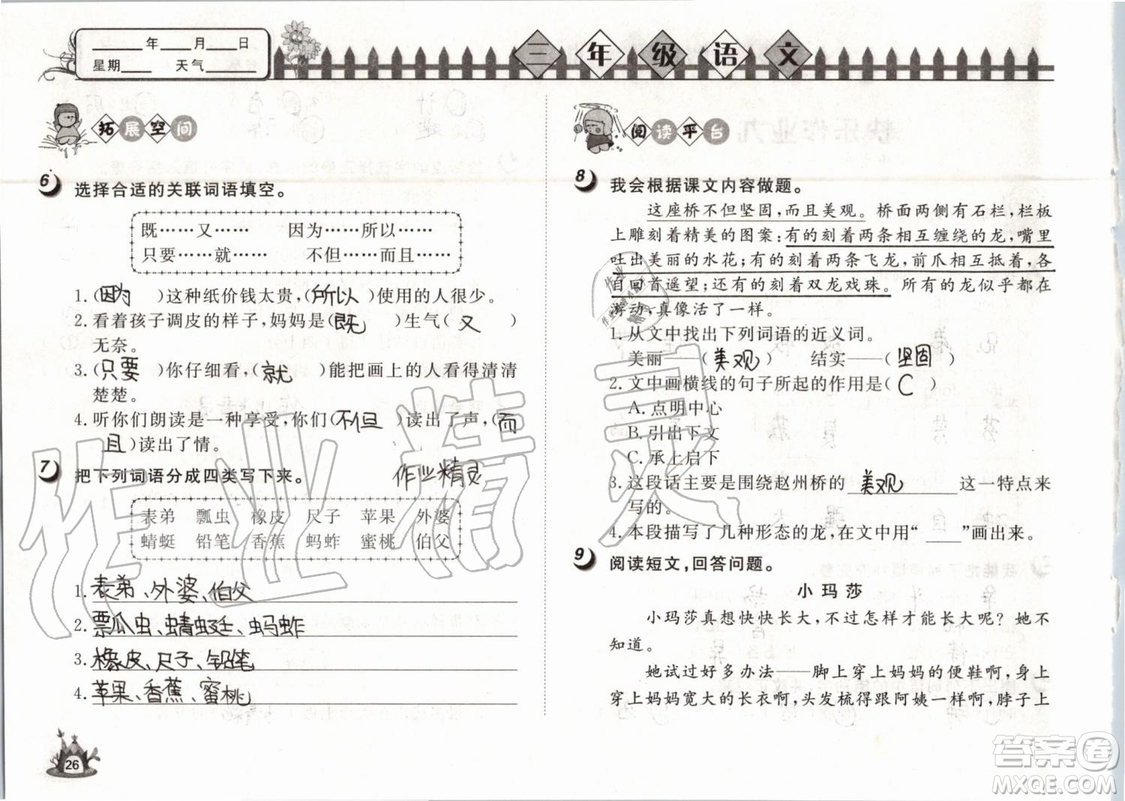 ____年____月____日
星期____ 天气____
三年级语文
拓展空间
6 选择合适的关联词语填空。
既……又…… 因为……所以……
只要……就…… 不但……而且……
1. (因为)这种纸价钱太贵，(所以)使用的人很少。
2. 看着孩子调皮的样子，妈妈是(既)生气(又)
无奈。
3. (只要)你仔细看，(就)能把画上的人看得清清
楚楚。
4. 听你们朗读是一种享受，你们(不但)读出了声，(而
且)读出了情。
7 把下列词语分成四类写下来。
作业精灵
表弟 瓢虫 橡皮 尺子 苹果 外婆
蜻蜓 铅笔 香蕉 蚂蚱 蜜桃 伯父
1. 表弟、外婆、伯父
2. 瓢虫、蜻蜓、蚂蚱
3. 橡皮、尺子、铅笔
4. 苹果、香蕉、蜜桃
26
阅读平台
8 我会根据课文内容做题。
这座桥不但坚固，而且美观。桥面两侧有石栏，栏板
上雕刻着精美的图案：有的刻着两条相互缠绕的龙，嘴里
吐出美丽的水花；有的刻着两条飞龙，前爪相互抵着，各
自回首遥望；还有的刻着双龙戏珠。所有的龙似乎都在
游动，真像活了一样。
1. 从文中找出下列词语的近义词。
美丽——(美观) 结实——(坚固)
2. 文中画横线的句子所起的作用是(C)
A. 点明中心
B. 引出下文
C. 承上启下
3. 这段话主要是围绕赵州桥的 美观 这一特点来
写的。
4. 本段描写了几种形态的龙，在文中用“____”画出来。
9 阅读短文，回答问题。
小玛莎
小玛莎真想快快长大，不过怎样才能长大呢？她不
知道。
她试过好多办法——脚上穿上妈妈的便鞋啊，身上
穿上妈妈宽大的长衣啊，头发梳得跟阿姨一样啊，脖子上
作业精灵
答案圈
MXQE.COM